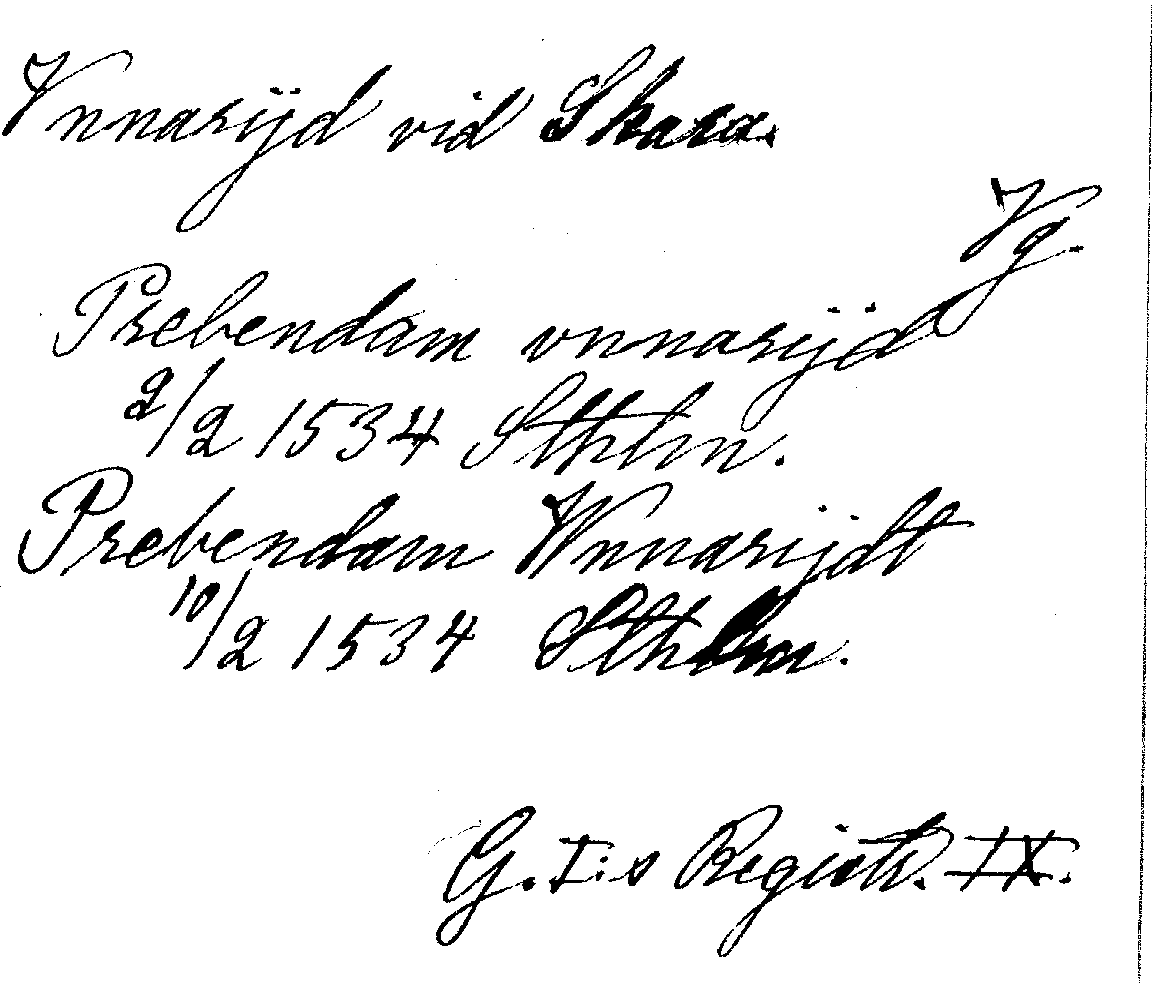 Vnnarijd vid Skara.
Vg.
Prebendam vnnarijd
9/2 1534 Sthlm.
Prebendam Wnnarijdt
10/2 1534 Sthlm.
G. I:s Registr. IX.